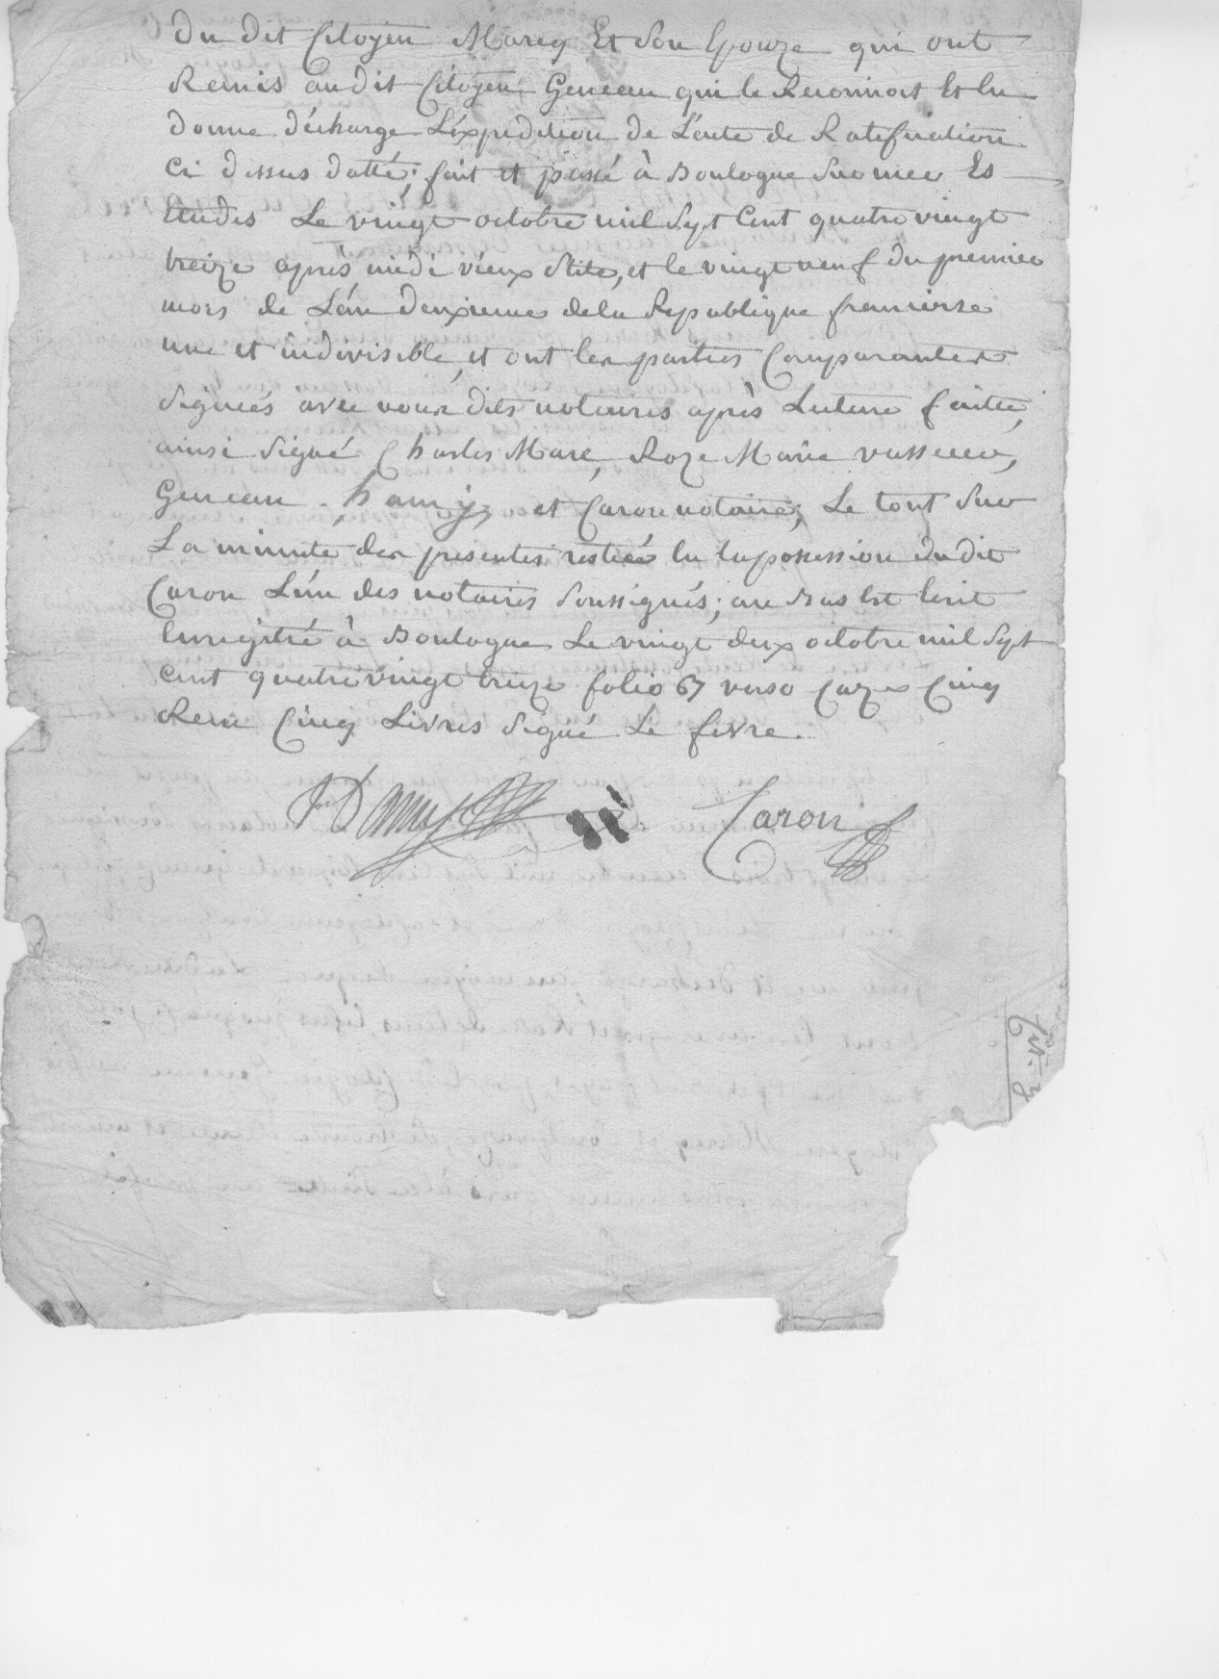 Du dit Citoyen Marcq Et Son Epouze qui ont
Remis audit Citoyen Geneau qui le Reconnoit Et En
donne décharge L'éxpedition de L'acte de Ratification
Ci dessus datté; fait et passé à Boulogne Sur mer Es
Etudes Le vingt octobre mil Sept Cent quatre vingt
treize après midi vieux Stile, et le vingt neuf du premier
mois de L'an deuxieme de la Republique francaise
une et indivisible, et ont les parties Comparantes
Signées avec nous dits notaires après Lecture faitte,
ainsi Signé Charles Marc, Roze Marie vasseur,
Geneau. hamy et Caron notaire; Le tout Sur
La minute des presentes restée En la possession du dit
Caron L'un des notaires Soussignés; au Bas Est Ecrit
Enregistré à Boulogne Le vingt deux octobre mil Sept
Cent quatre vingt treize folio 67 verso Caze Cinq
Reçu Cinq Livres Signé Le fevre.
Hamy Caron